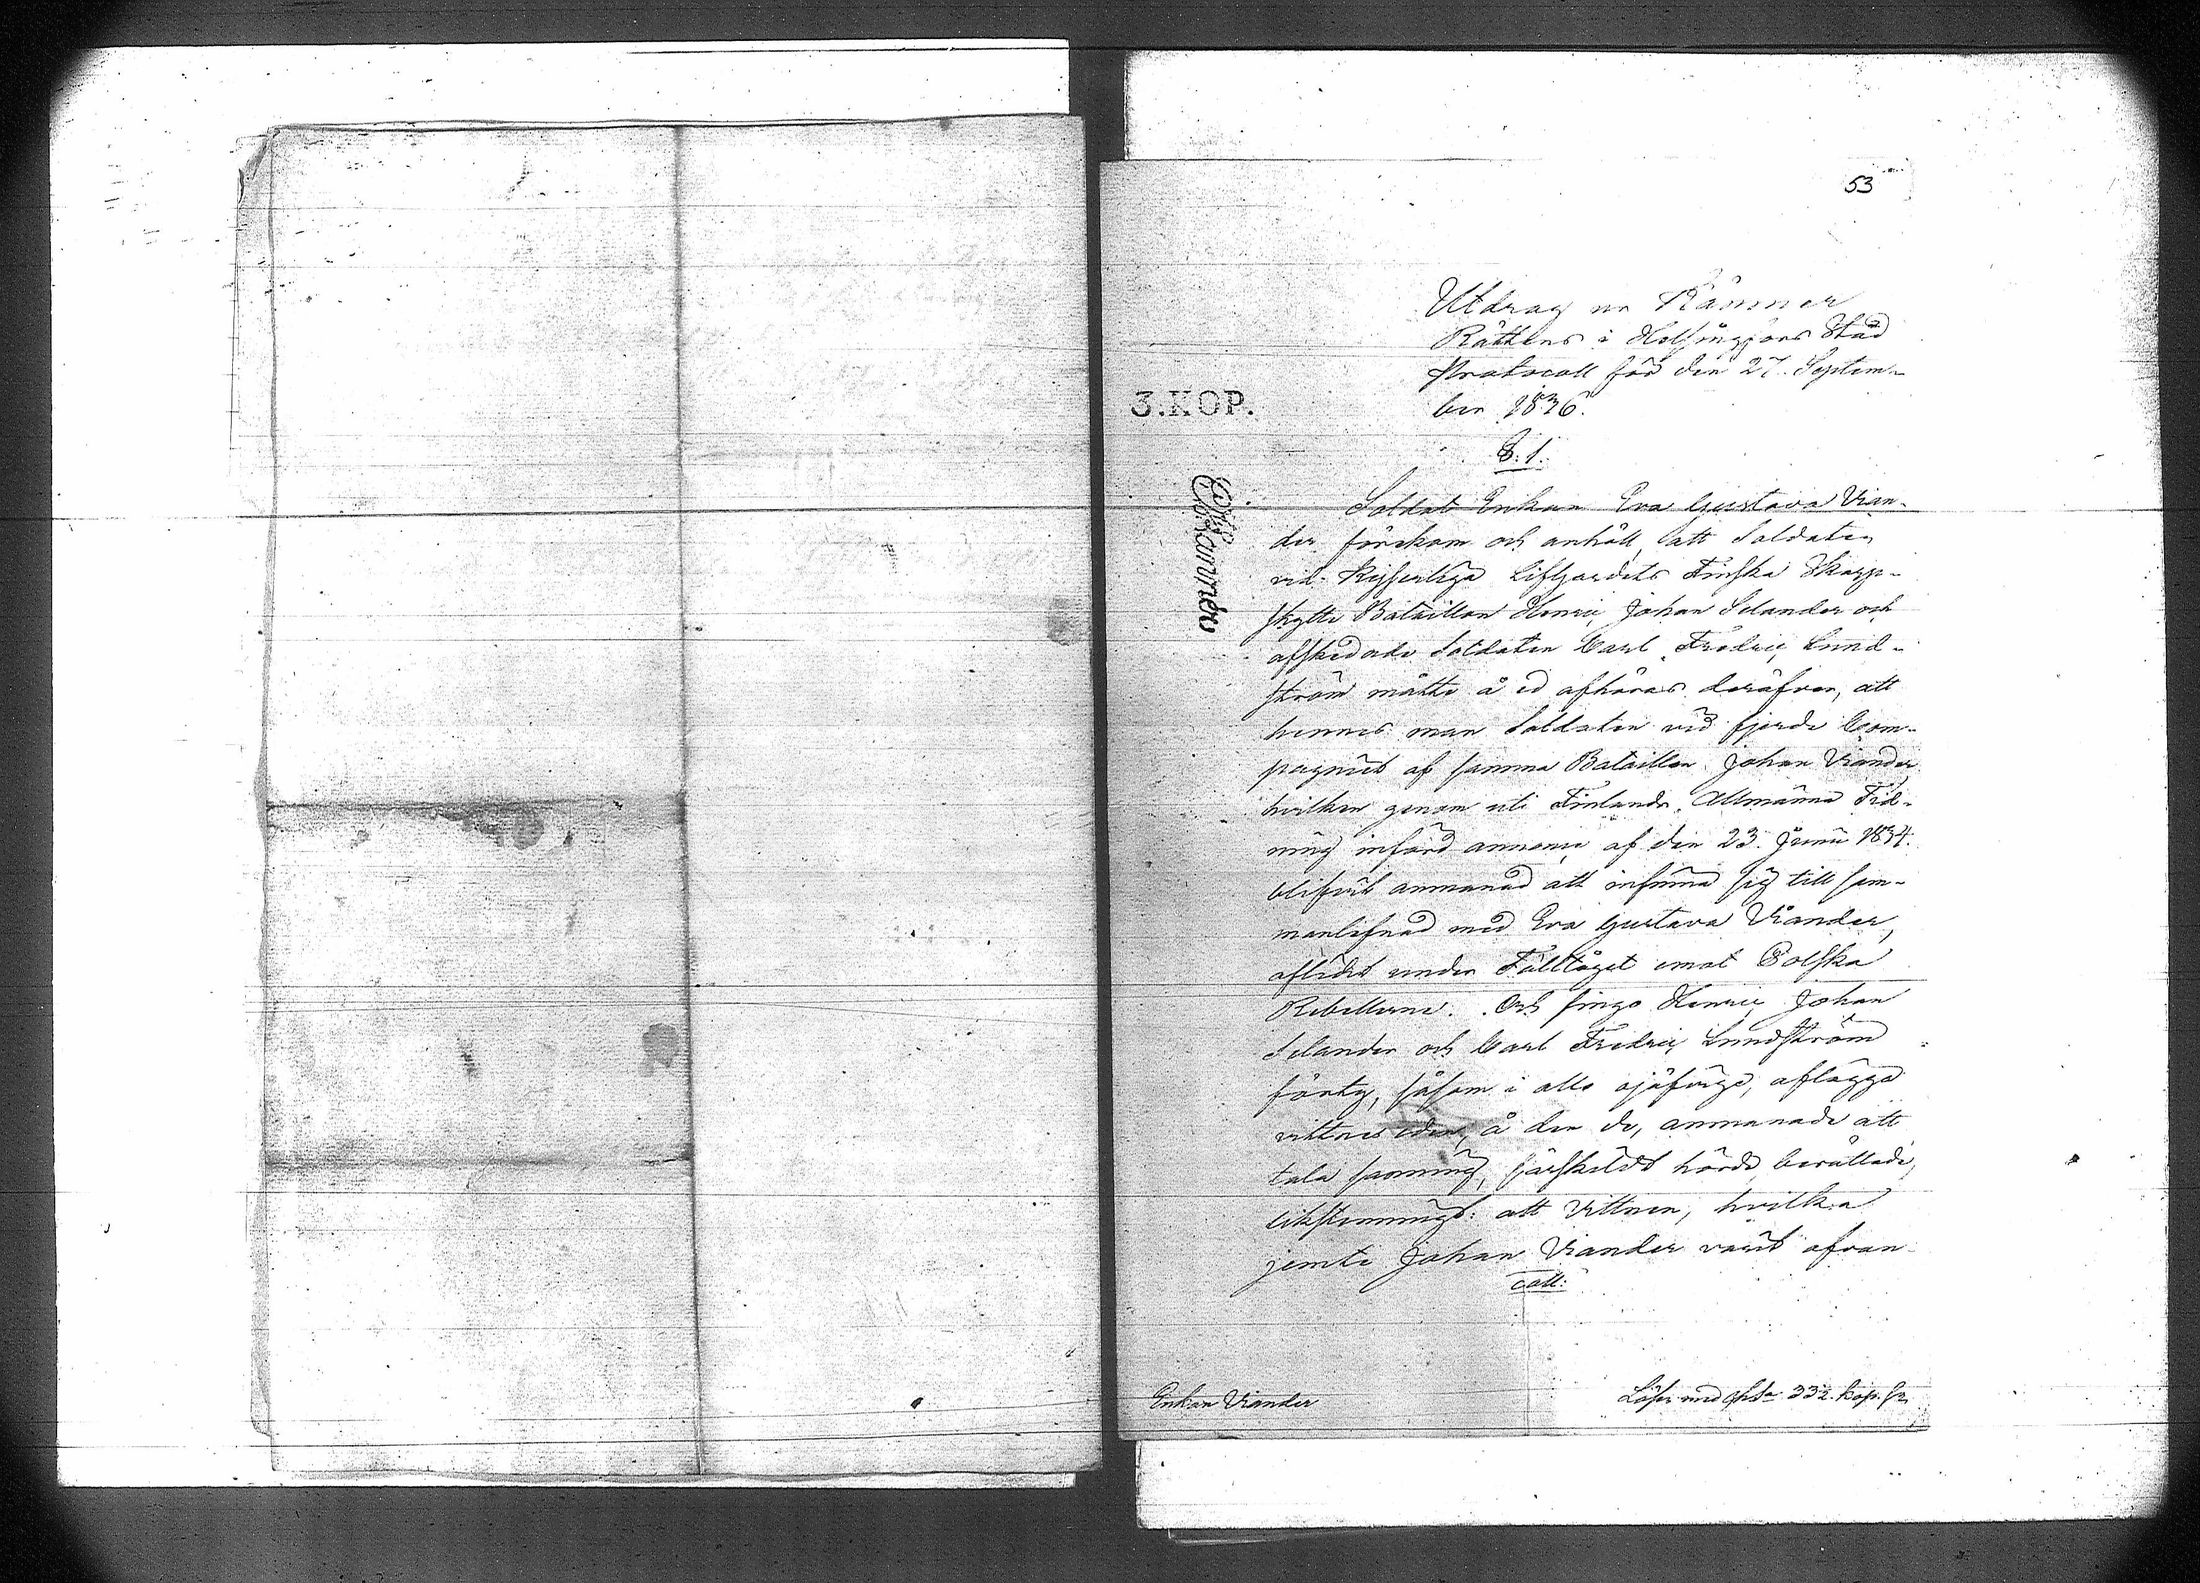 53
Utdrag ur Kämner
Rättens i Helsingfors Stad
Protocoll för den 27. Septem-
ber 1836.
3.KOP.
§. 1.
Soldat Enkan Eva Gustava Vian-
der förekom och anhöll, att Soldaten
vid Kejserliga Lifgardets Finska Skarp-
skytte Bataillon Henric Johan Selander och
afskedade Soldaten Carl Fredric Lund-
ström måtte å ed afhöras deröfver, att
hennes man Soldaten vid fjerde Com-
pagniet af samma Bataillon Johan Viander
hvilken genom uti Finlands Allmänna Tid-
ning införd annonce af den 23. Junii 1834.
blifvit anmanad att infinna sig till sam-
manlefnad med Eva Gustava Viander,
aflidit under Fälttåget emot Polska
Rebellerne. Och fingo Henric Johan
Selander och Carl Fredric Lundström
förty, såsom i allo ojäfvige, aflägga
vittnes eden, å den de, anmanade att
tala sanning, särskildt hörde, berättade,
likstämmigt: att Vittnen, hvilka
jemte Johan Viander varit afvan
Enkan Viander
Löses med 332. kop.